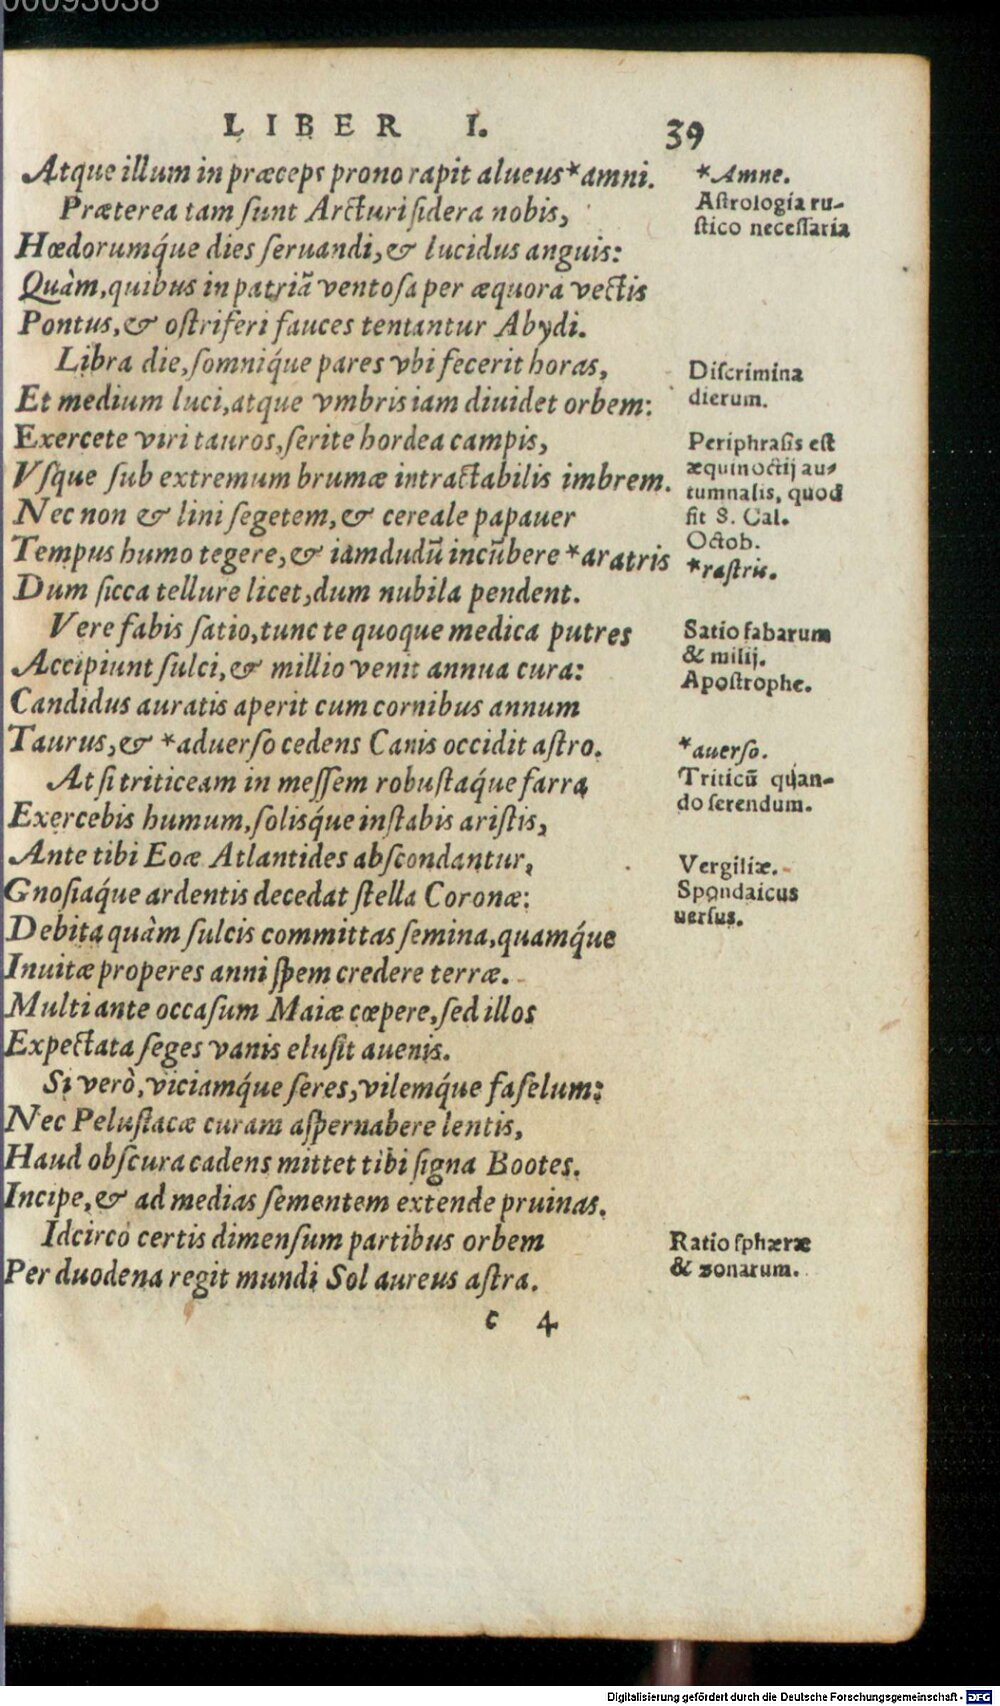 00093038
LIBER I. 39
Atque illum in præceps prono rapit alueus *amni.
Præterea tam ſunt Arcturi ſidera nobis,
Hœdorumq́ue dies ſeruandi, & lucidus anguis:
Quàm, quibus in patriã ventoſa per æquora vectis
Pontus, & oſtriferi fauces tentantur Abydi.
Libra die, ſomniq́ue pares vbi fecerit horas,
Et medium luci, atque vmbris iam diuidet orbem:
Exercete viri tauros, ſerite hordea campis,
Vſque ſub extremum brumæ intractabilis imbrem.
Nec non & lini ſegetem, & cereale papauer
Tempus humo tegere, & iamdudũ incũbere *aratris
Dum ſicca tellure licet, dum nubila pendent.
Vere fabis ſatio, tunc te quoque medica putres
Accipiunt ſulci, & millio venit annua cura:
Candidus auratis aperit cum cornibus annum
Taurus, & *aduerſo cedens Canis occidit aſtro.
At ſi triticeam in meſſem robuſtaq́ue farra
Exercebis humum, ſoliſq́ue inſtabis ariſtis,
Ante tibi Eoæ Atlantides abſcondantur,
Gnoſiaq́ue ardentis decedat ſtella Coronæ:
Debita quàm ſulcis committas ſemina, quamq́ue
Inuitæ properes anni ſpem credere terræ.
Multi ante occaſum Maiæ cœpere, ſed illos
Expectata ſeges vanis eluſit auenis.
Si verò, viciamq́ue ſeres, vilemq́ue faſelum:
Nec Peluſiacæ curam aſpernabere lentis,
Haud obſcura cadens mittet tibi ſigna Bootes.
Incipe, & ad medias ſementem extende pruinas.
Idcirco certis dimenſum partibus orbem
Per duodena regit mundi Sol aureus aſtra.
c 4
*Amne.
Aſtrologia ru-
ſtico neceſſaria
Diſcrimina
dierum.
Periphraſis eſt
æquinoctij au-
tumnalis, quod
fit 8. Cal.
Octob.
*raſtris.
Satio fabarum
& milij.
Apoſtrophe.
*auerſo.
Triticũ quan-
do ſerendum.
Vergiliæ.
Spondaicus
uerſus.
Ratio ſphæræ
& zonarum.
Digitalisierung gefördert durch die Deutsche Forschungsgemeinschaft - DFG